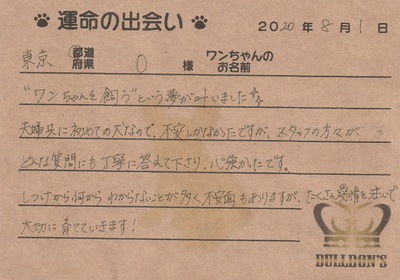 運命の出会い 2020年8月1日
東京 都道府県 O 様 ワンちゃんのお名前
"ワンちゃんを飼う"という夢が叶いました☆
夫婦共に初めての犬なので、不安しかなかったですが、スタッフの方々が
どんな質問にも丁寧に答えて下さり、心強かったです。
しつけから何から わからないことが多く不安面もありますが、たくさん愛情を注いで
大切に育てていきます!
BULLDON'S